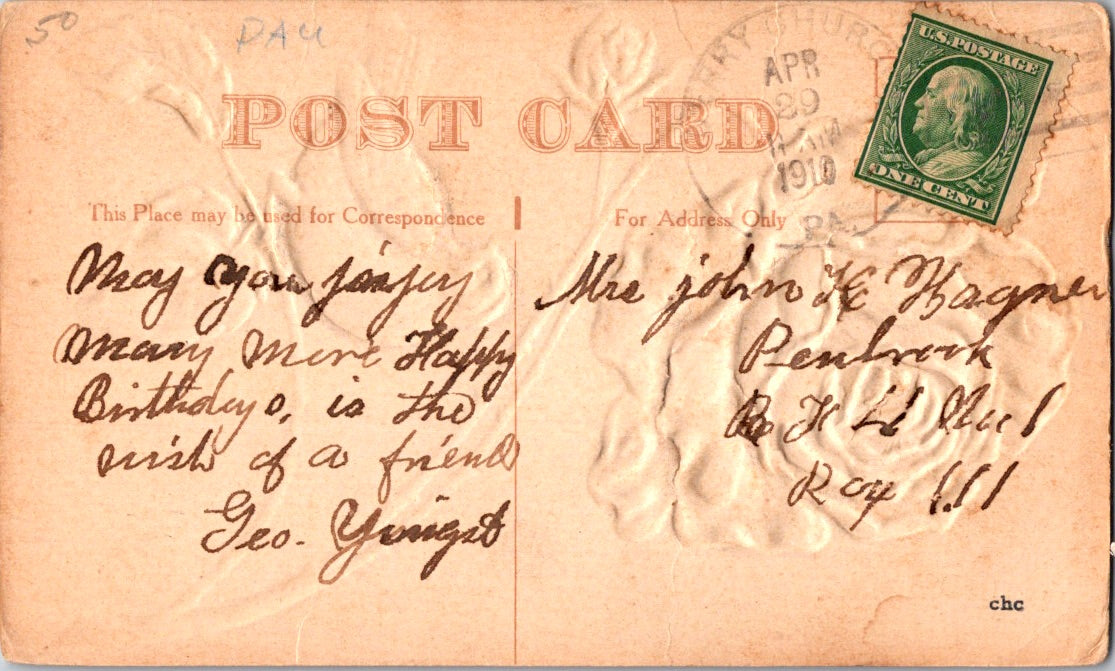 .50
DAU
POST CARD
ERRY CHURCH
APR
29
11 AM
1910
PA.
U.S. POSTAGE
ONE CENT
This Place may be used for Correspondence
For Address Only
May you jonjoy
Many More Happy
Birthdays, is the
wish of a friend
Geo. Yingst
Mrs john H Wagner
Penbrook
R F D No 1
Box 111
chc